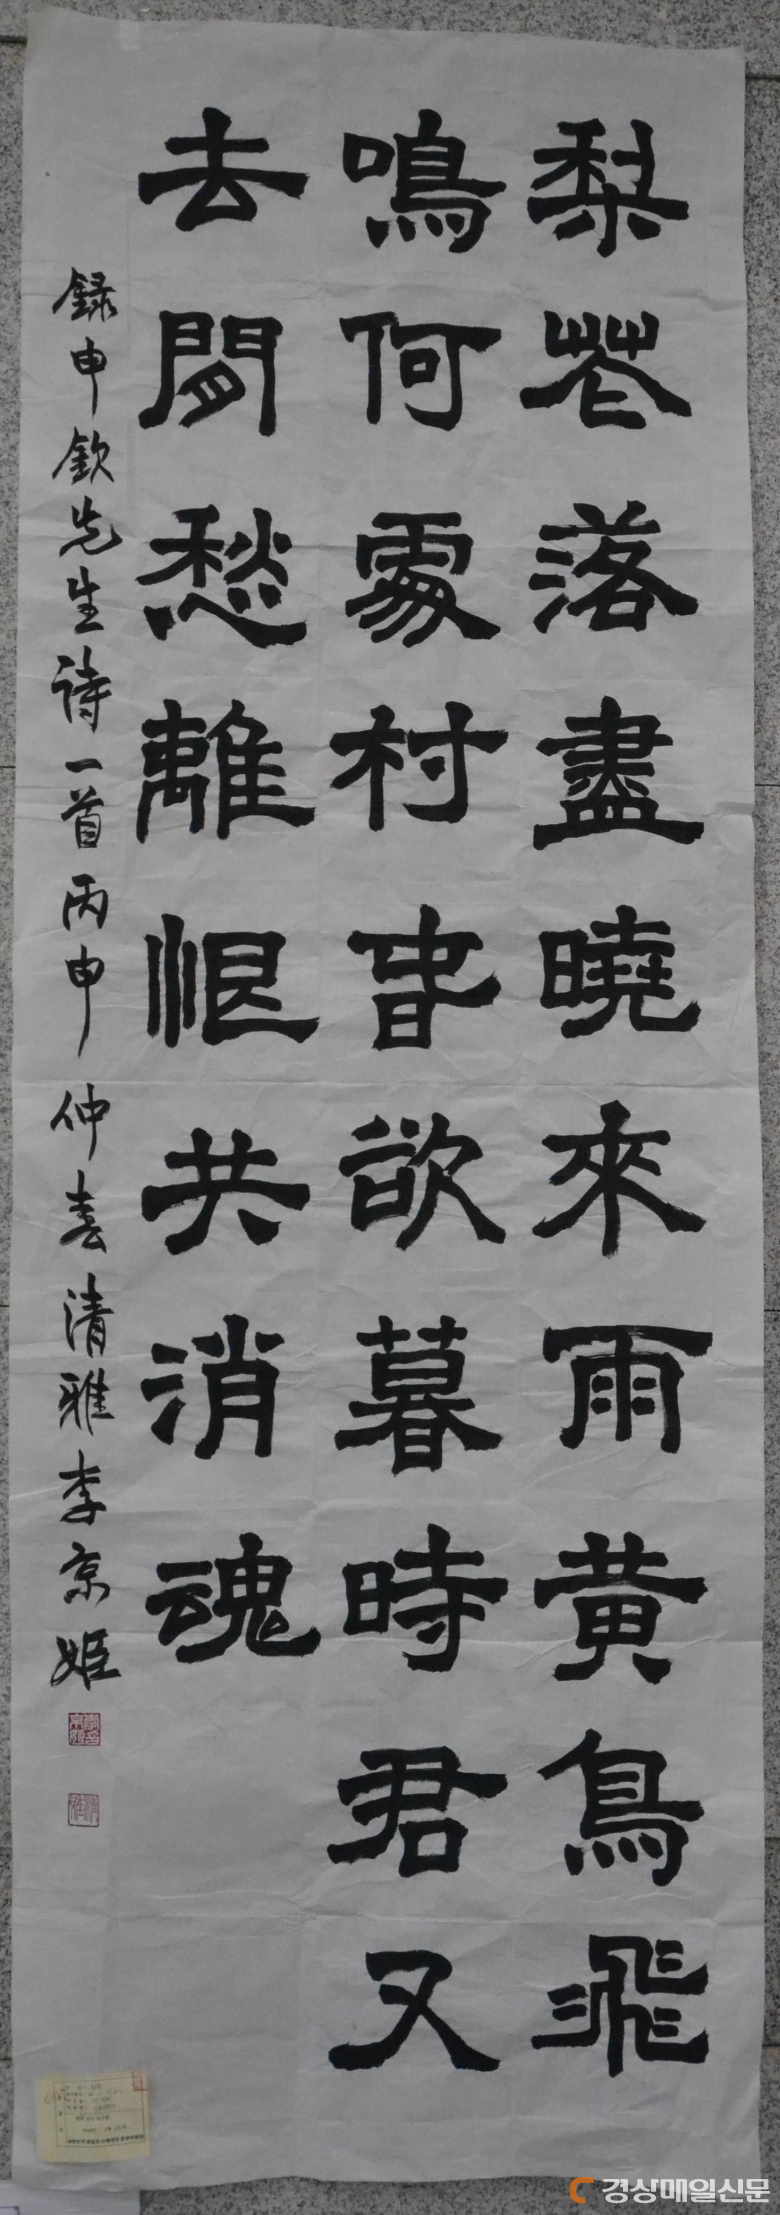 梨花落盡曉來雨黄鳥飛
鳴何處村春欲暮時君又
去閒愁離恨共消魂
錄申欽先生詩一首丙申仲春清雅李京姬
경상매일신문